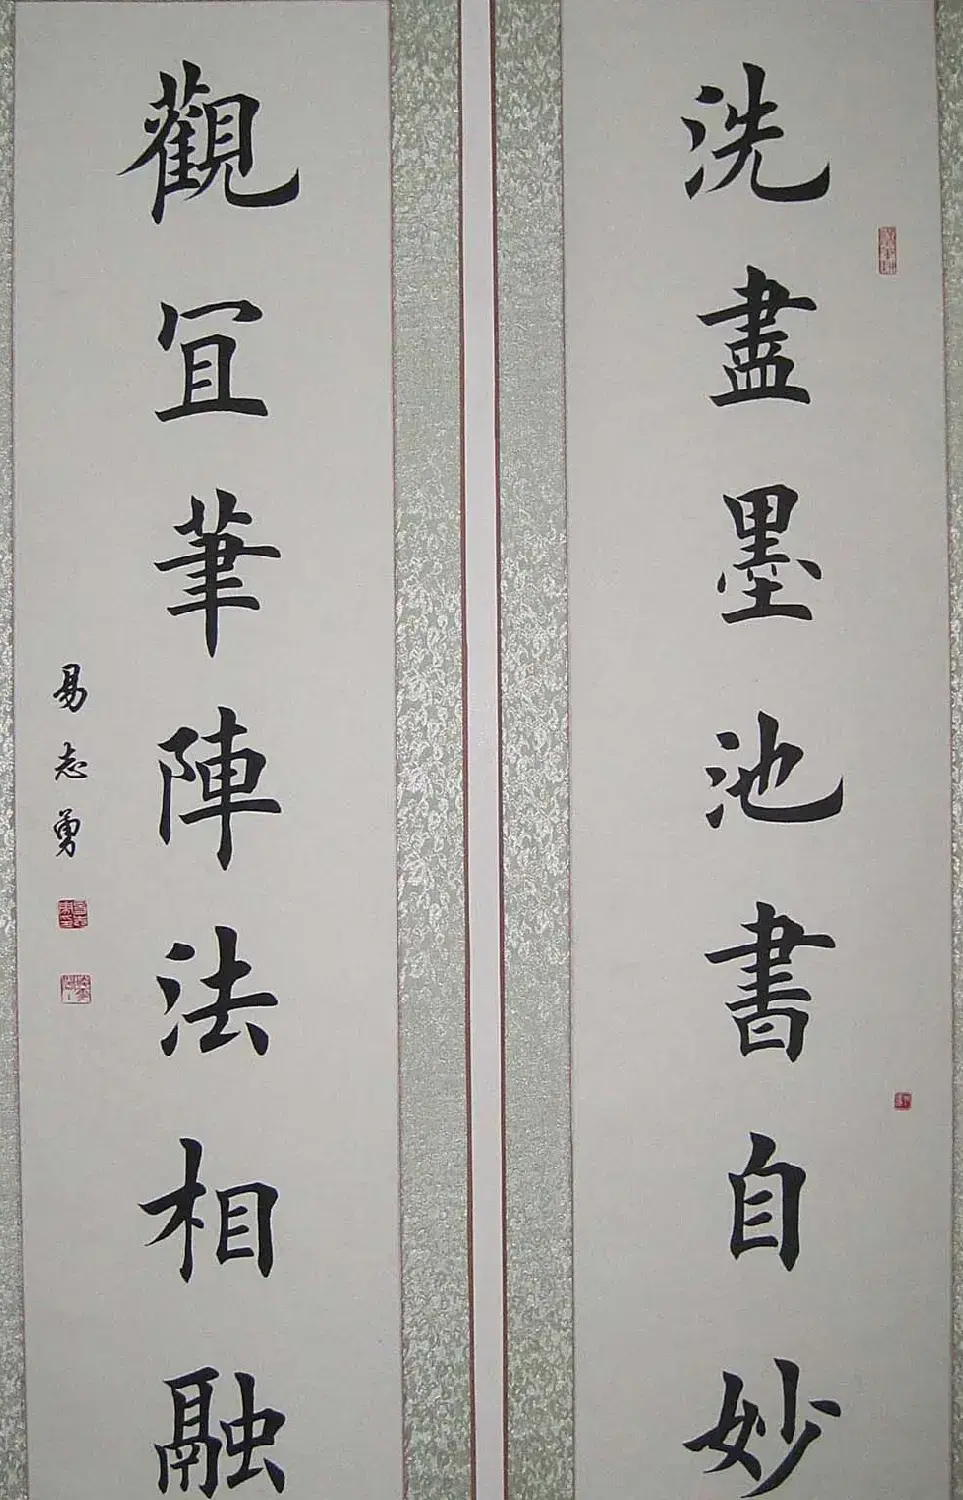 洗盡墨池書自妙
觀宜筆陣法相融
易志勇